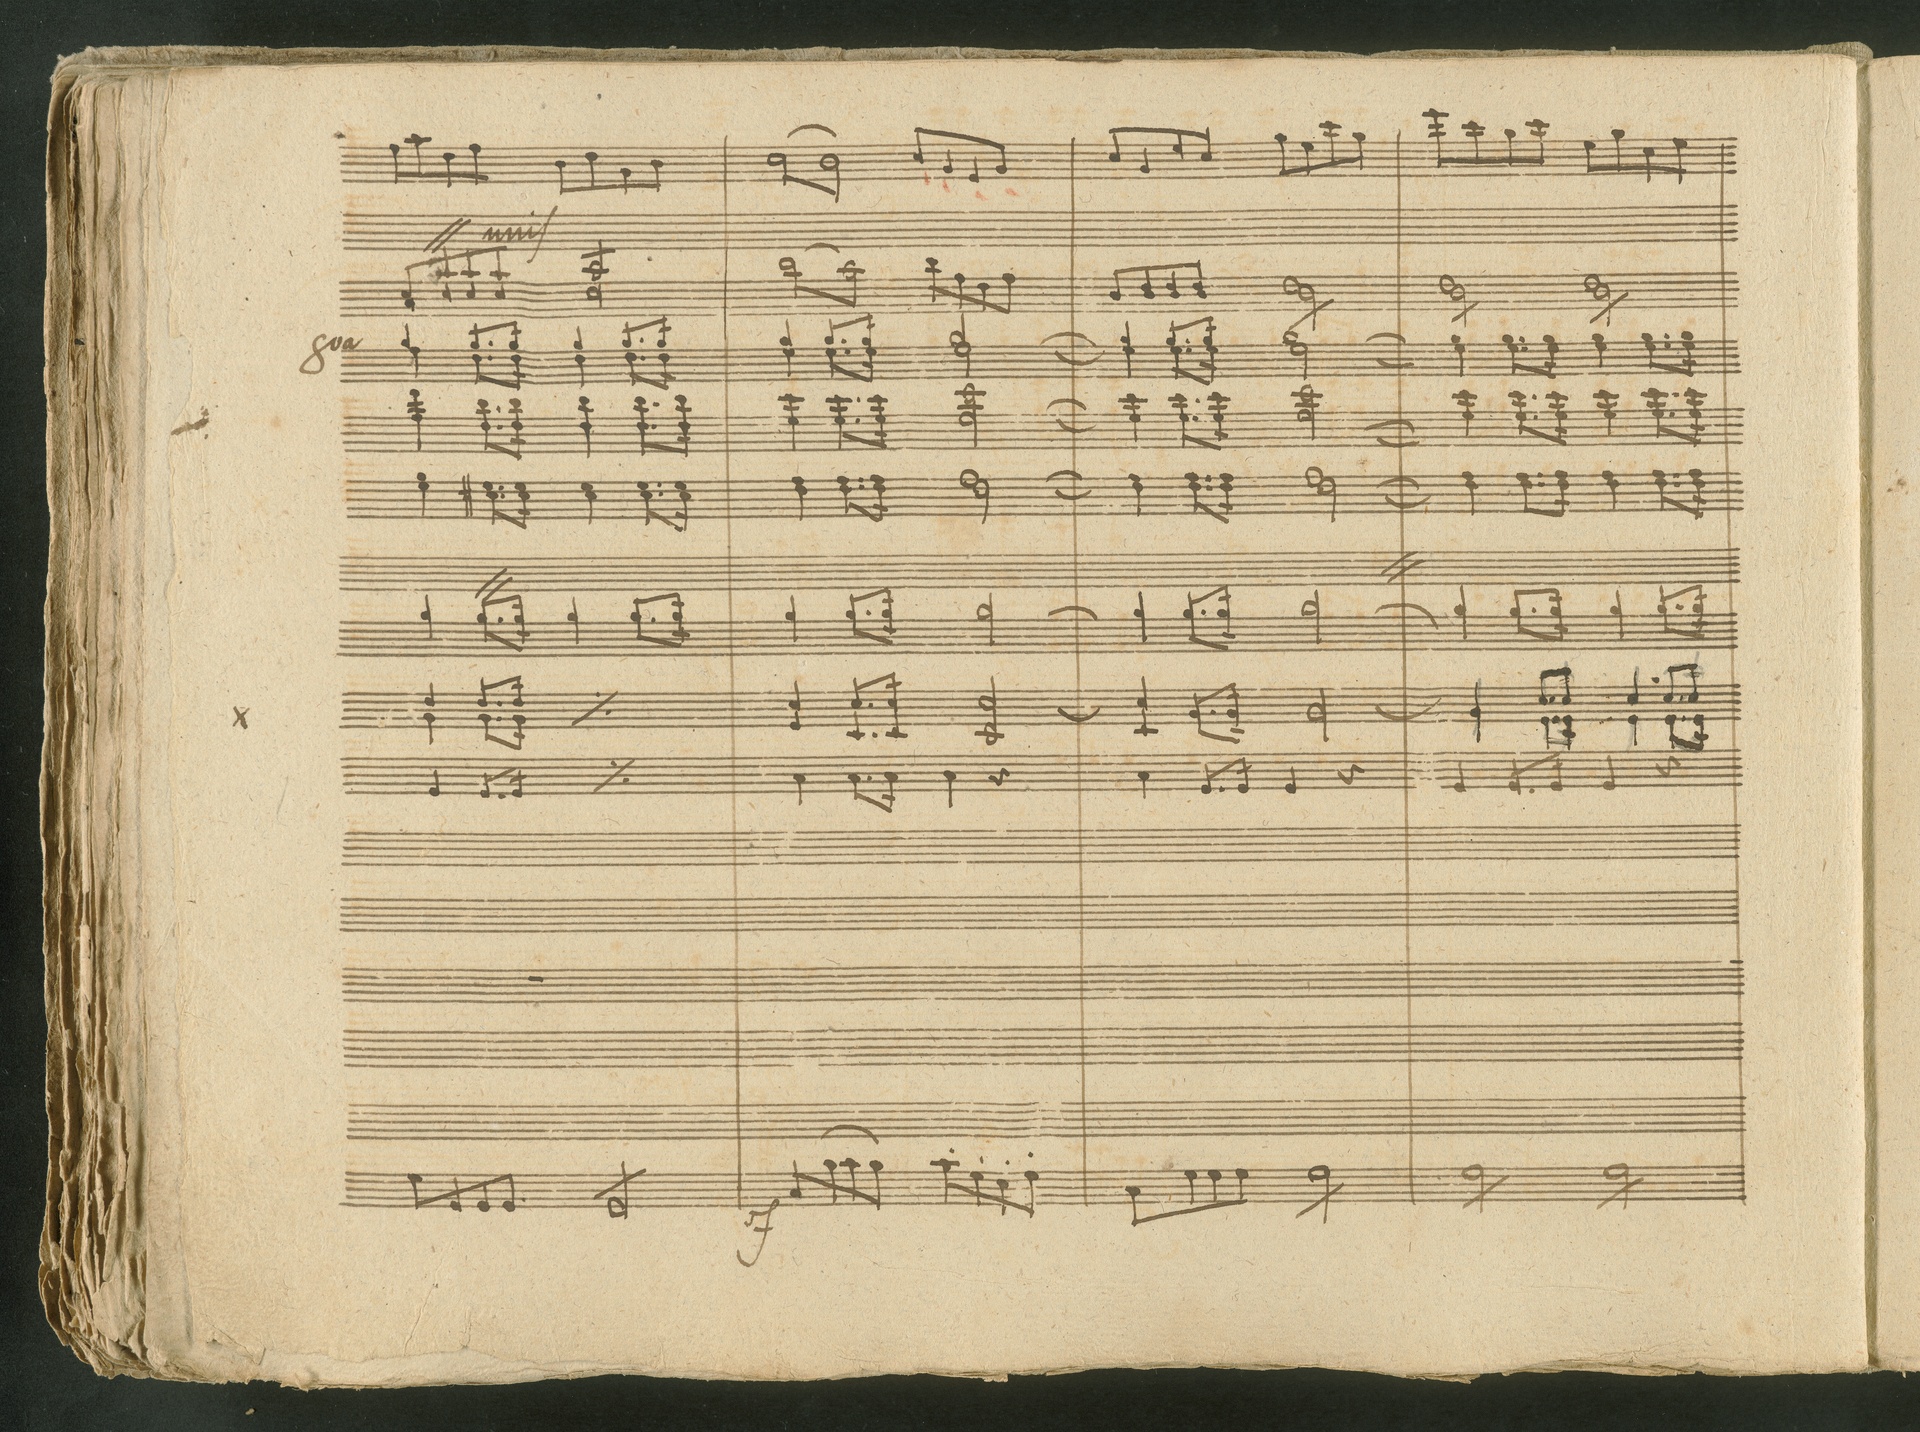 unis
8va
x
sf